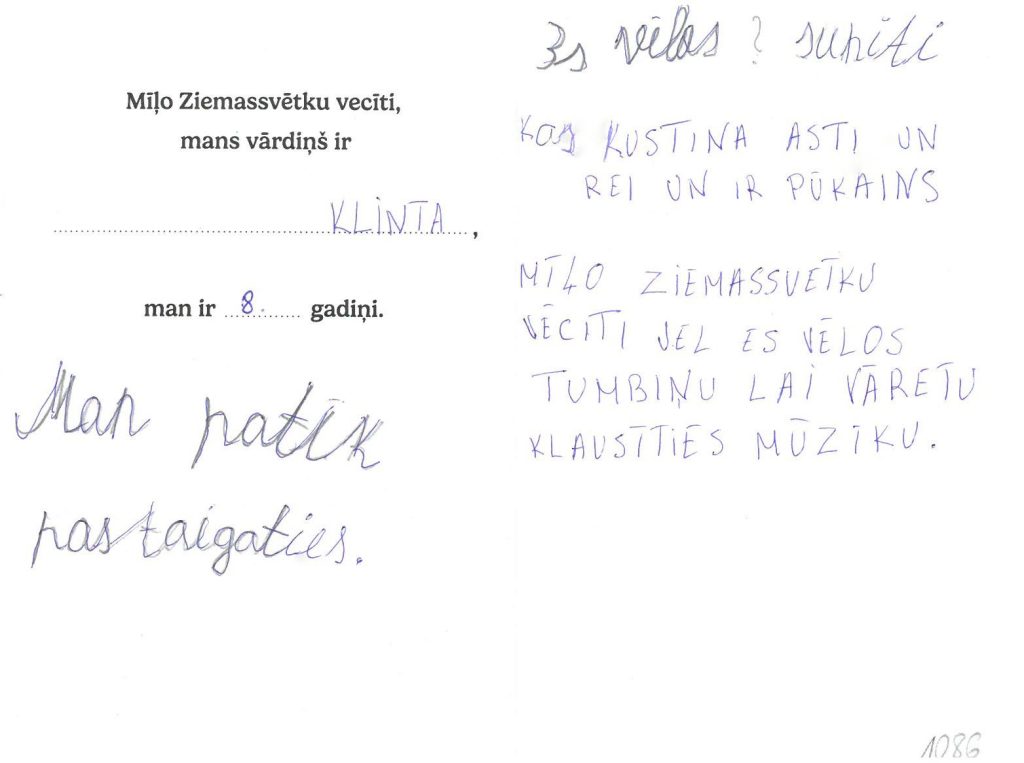 Mīļo Ziemassvētku vecīti,
mans vārdiņš ir
KLINTA,
man ir 8. gadiņi.
Man patīk
pastaigaties.
Es vēlos ? sunīti
KAS KUSTINA ASTI UN
REI UN IR PŪKAINS
MĪĻO ZIEMASSVETĪKU
VĒCITI VEL ES VĒLOS
TUMBIŅU LAI VĀRETU
KLAUSĪTIES MŪZIKU.
1086